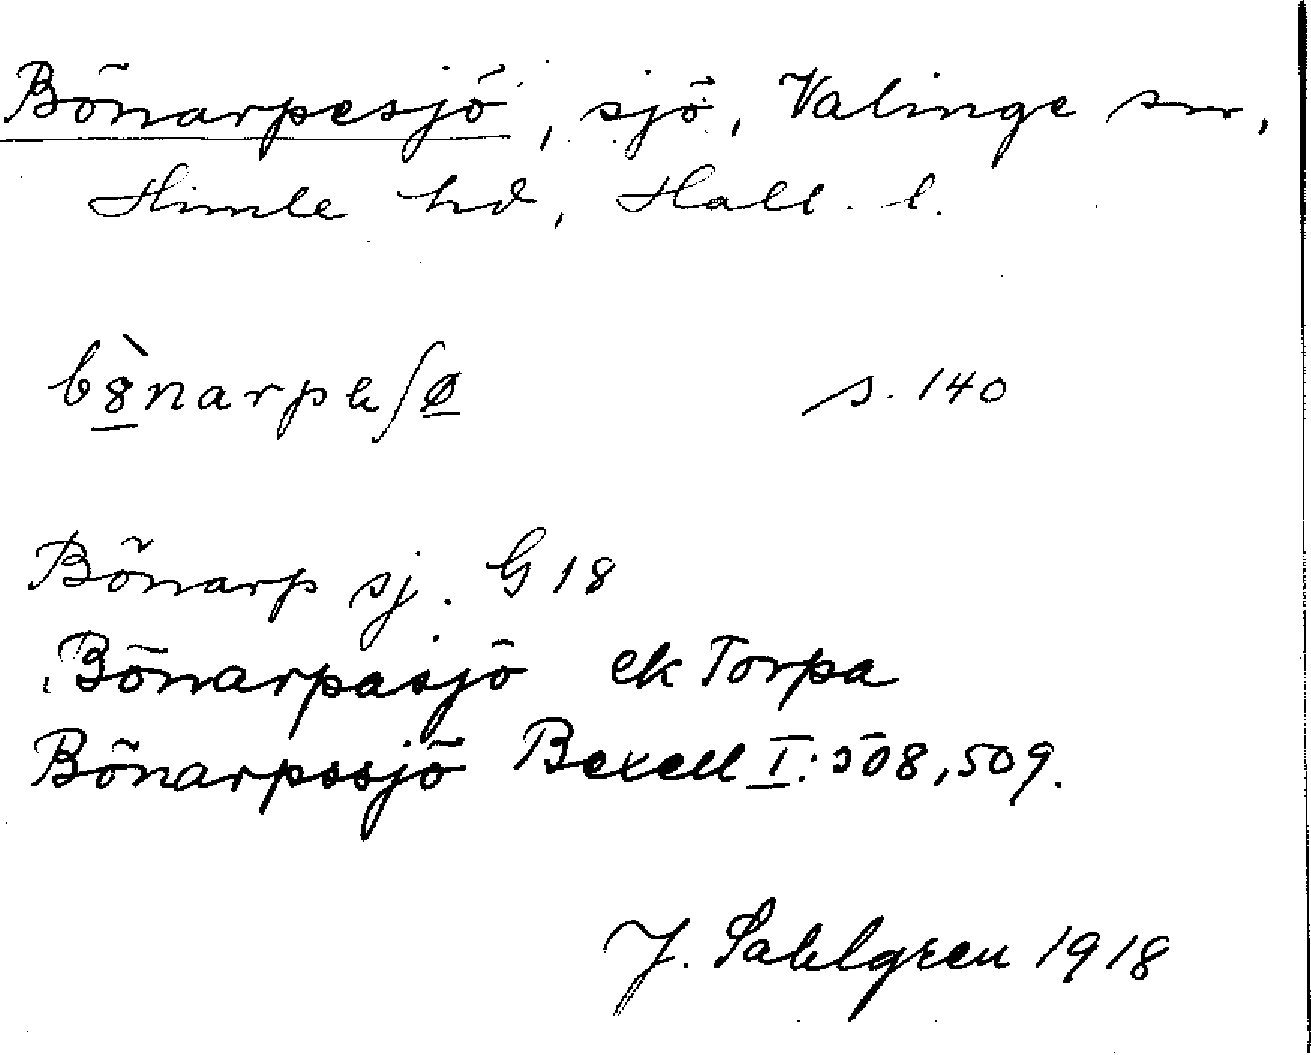 Bönarpesjö, sjö, Valinge sn,
Himle hd, Hall. l.
s. 140
Bönarp sj. G 18
Bönarpasjö ek Torpa
Bönarpssjö Bexell I:508,509.
J. Sahlgren 1918